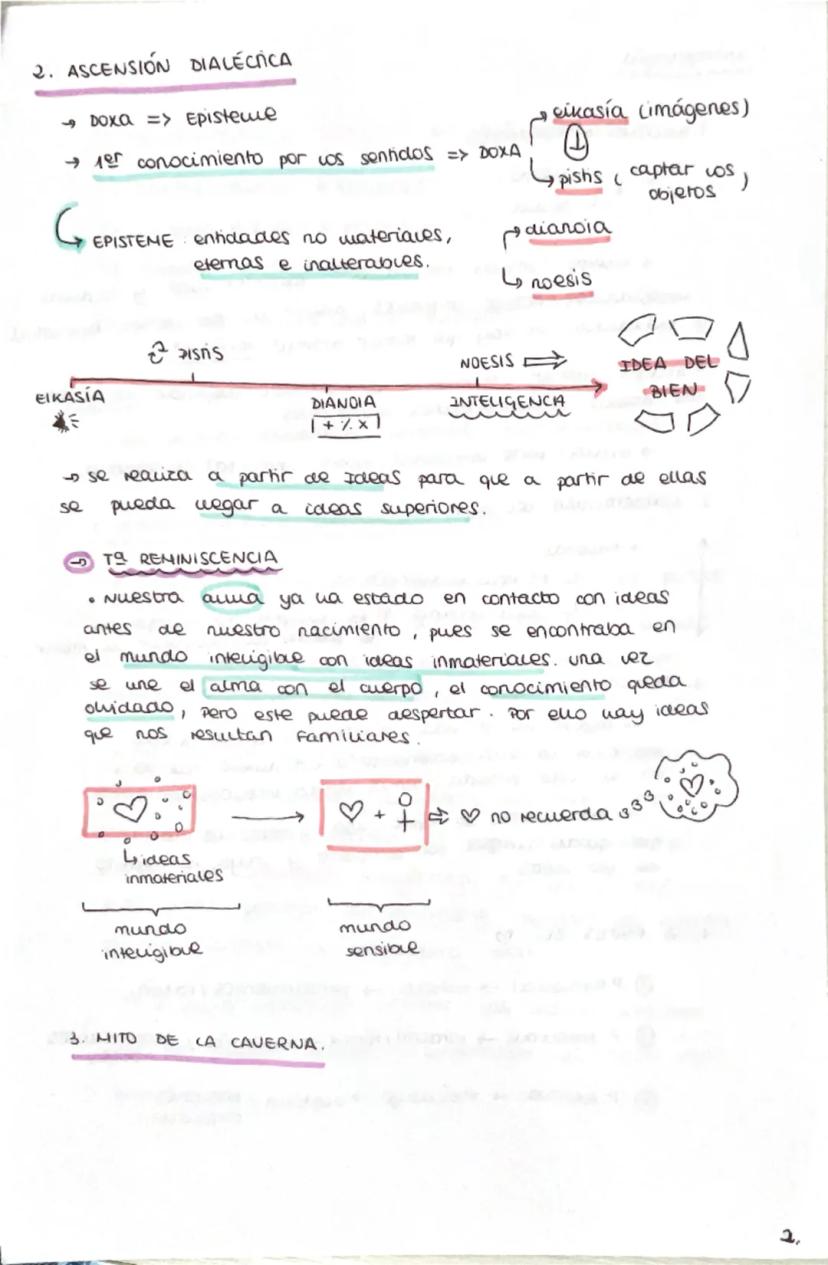 2. ASCENSIÓN DIALÉCTICA
→ DOXA => Episteme
→ 1er conocimiento por los sentidos => DOXA
eikasía (imágenes)
pistis (captar los objetos)
EPISTEME: entidades no materiales,
eternas e inalterables.
dianoia
noesis
PISTIS
NOESIS ⇒
IDEA DEL
BIEN
EIKASÍA
DIANOIA
INTELIGENCIA
+ % x
→ se realiza a partir de Ideas para que a partir de ellas
se pueda llegar a ideas superiores.
→ Tª REMINISCENCIA
• Nuestra alma ya ha estado en contacto con ideas
antes de nuestro nacimiento, pues se encontraba en
el mundo inteligible con ideas inmateriales. una vez
se une el alma con el cuerpo, el conocimiento queda
olvidado, pero este puede despertar. Por ello hay ideas
que nos resultan familiares.
♡ + ⇒ ♡ no recuerda
↳ ideas
inmateriales
mundo
inteligible
mundo
sensible
3. MITO DE LA CAVERNA.
2.